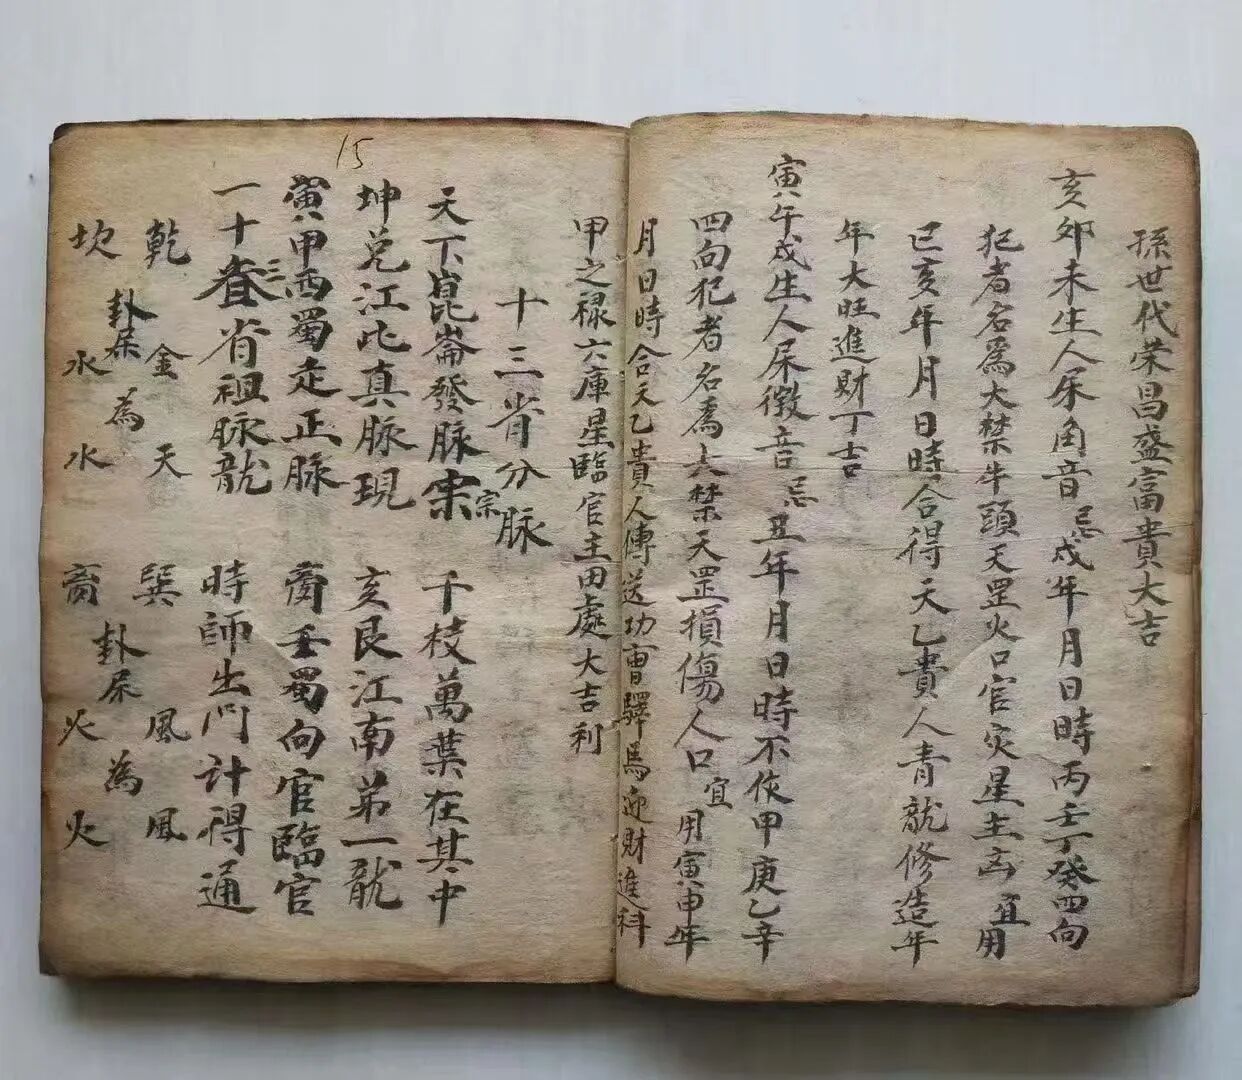 孫世代荣昌盛富貴大吉
亥夘未生人屎角音忌戍年月日時丙壬丁癸四向
犯者名爲大禁牛頭天罡火口官灾星主凶宜用
已亥年月日時合得天乙貴人青龍修造年
年大旺進財丁吉
寅午戍生人屎徴音忌丑年月日時不作甲庚乙辛
四向犯者名爲大禁天罡損傷人口宜用寅申年
月日時合天乙貴人傳送功曹驛馬迎財進科
甲之禄六庫星臨官主田處大吉利
十三省分脉
天下崑崙發脉宗 千枝萬葉在其中
宗
坤兑江北真脉現 亥艮江南第一龍
寅甲西蜀走正脉 壬蜀向官臨官
一十三省祖脉龍 時師出門計得通
15
乾 金 天 巽 風 風
卦屎為 卦屎為
坎 水 水 离 火 火